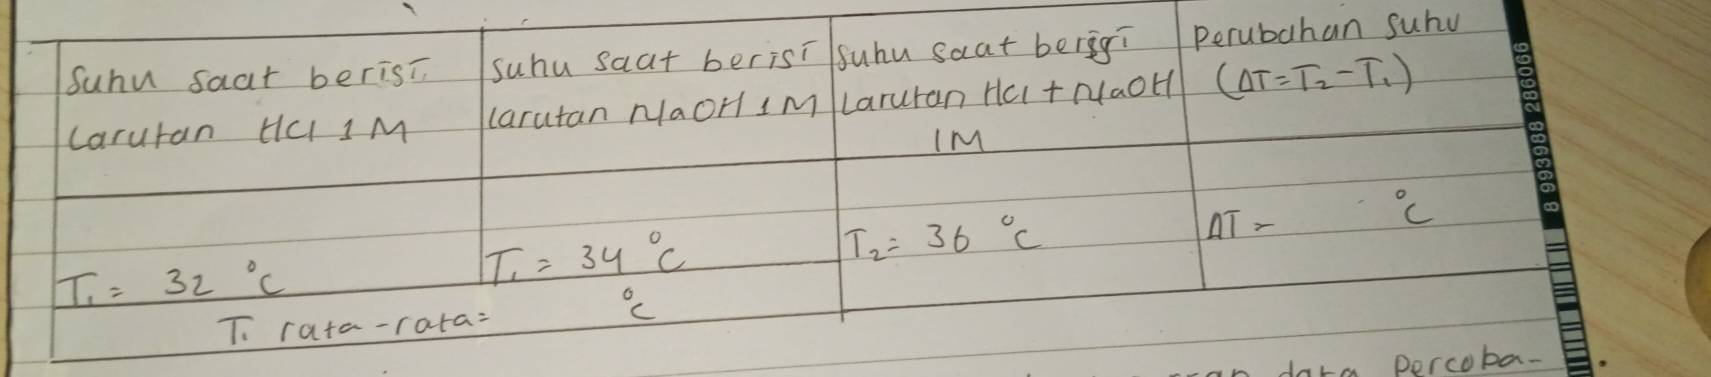 Suhu saat berisi
larutan HCl 1 M
Suhu saat berisi
larutan NaOH 1 M
Suhu saat berisi
larutan HCl + NaOH
1 M
Perubahan suhu
(ΔT = T₂ - T₁)
T₁ = 32 °C
T₁ = 34 °C
T₂ = 36 °C
ΔT = °C
T₁ rata-rata = °C
data percoba-
8 993988 286066